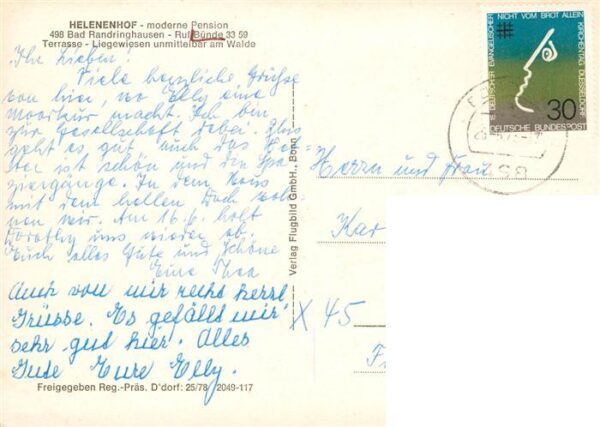 HELENENHOF - moderne Pension
498 Bad Randringhausen - Ruf Bünde 33 59
Terrasse - Liegewiesen unmittelbar am Walde
Ihr Lieben!
Viele herzliche Grüße
von hier, wo Elly eine
Moorkur macht. Ich bin
zur Gesellschaft dabei. Uns
geht es gut, auch das
ist schön und die Spa-
ziergänge. In dem Haus
mit dem hellen Dach woh-
nen wir. Am 16.6. holt
Dorothy uns wieder ab.
Euch alles Gute und schöne
Eure Thea
Auch von mir recht herzl
Grüsse. Es gefällt mir
sehr gut hier. Alles
Gute Eure Elly.
Freigegeben Reg.-Präs. D'dorf: 25/78 2049-117
Verlag Flugbild GmbH., Bonn
15. DEUTSCHER EVANGELISCHER KIRCHENTAG DUESSELDORF
NICHT VOM BROT ALLEIN
30
DEUTSCHE BUNDESPOST
Herrn und Frau
Kar
X 45